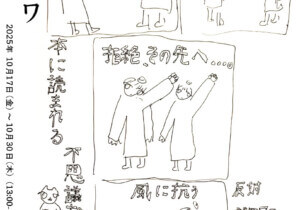 ワ
本に読まれる
不思議な
2025年 10月17日(金)～10月30日(木) (13:00-
拒絶、その先へ....
風に抗う
反対